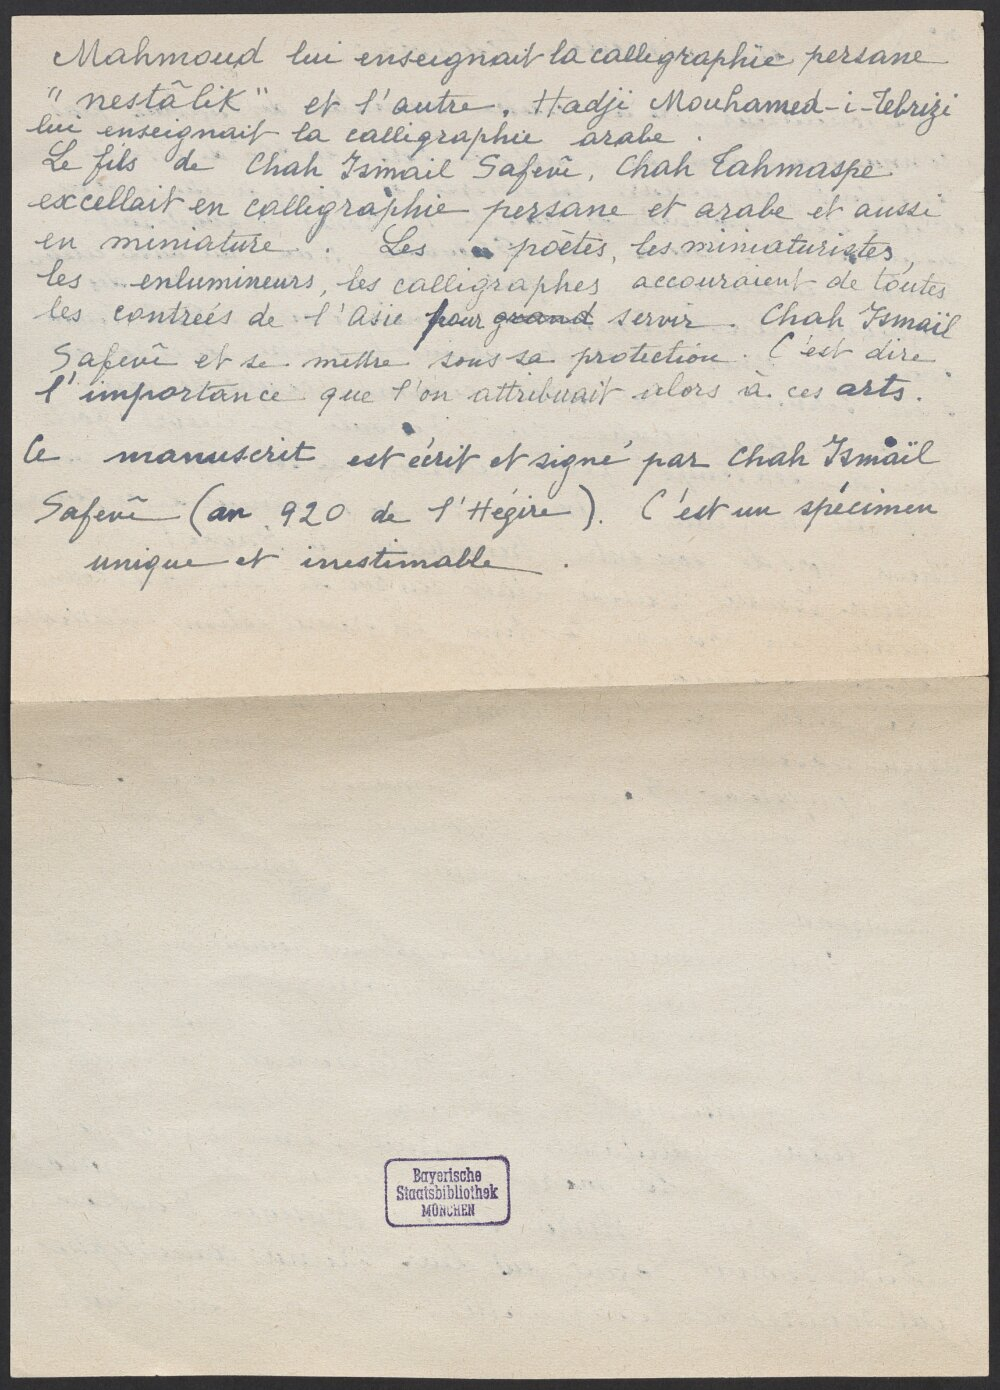 Mahmoud lui enseignait la calligraphie persane
"nestâlik" et l'autre, Hadji Mouhamed-i-Tebrizi
lui enseignait la calligraphie arabe.
Le fils de Chah Ismail Safevî, Chah Tahmaspe
excellait en calligraphie persane et arabe et aussi
en miniature. Les poètes, les miniaturistes,
les enlumineurs, les calligraphes accouraient de toutes
les contreés de l'Asie pour grand servir. Chah Ismaïl
Safevî et se mettre sous sa protection. C'est dire
l'importance que l'on attribuait alors à ces arts.
Ce manuscrit est écrit et signé par Chah Ismaïl
Safevî (an 920 de l'Hégire). C'est un spécimen
unique et inestimable.
Bayerische
Staatsbibliothek
MÜNCHEN